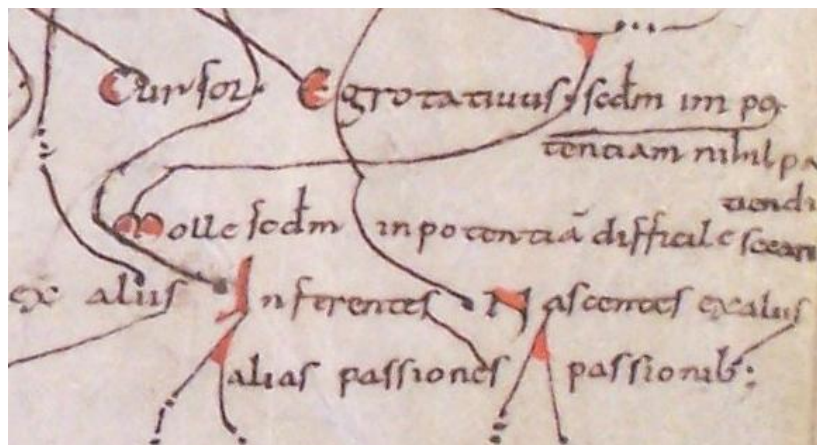 Cursor. Egrotatiuus. scdm im po
tentiam nihil pa
tiendi
Molle scdm inpotentiā difficile secan
ex aliis Inferentes Nascentes ex aliis
alias passiones passionib: